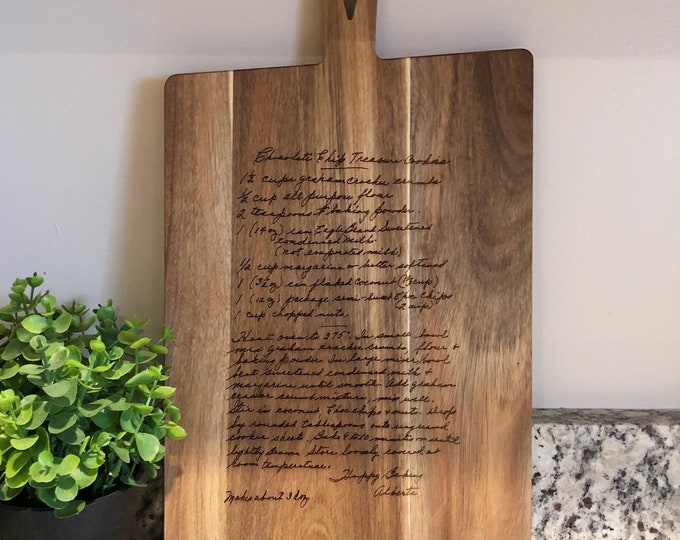 Chocolate Chip Treasure Cookies
1½ cups graham cracker crumbs
½ cup all purpose flour
2 teaspoons baking powder.
1 (14oz) can Eagle Brand Sweetened
condensed Milk
(not evaporated milk)
½ cup margarine or butter softened
1 (3½oz) can flaked coconut (1⅓ cup)
1 (12oz) package semi-sweet Choc Chips
2 cup)
1 cup chopped nuts.
Heat oven to 375°. In small bowl
mix graham cracker crumbs flour +
baking powder. In large mixer bowl
beat sweetened condensed milk +
margarine until smooth. Add graham
cracker crumb mixture, mix well.
Stir in coconut, Choc chips + nuts. Drop
by rounded tablespoons onto ungreased
cookie sheets. Bake 10 minutes or until
lightly brown. Store loosely covered at
room temperature.
Happy Baking
Makes about 3 doz
Alberta